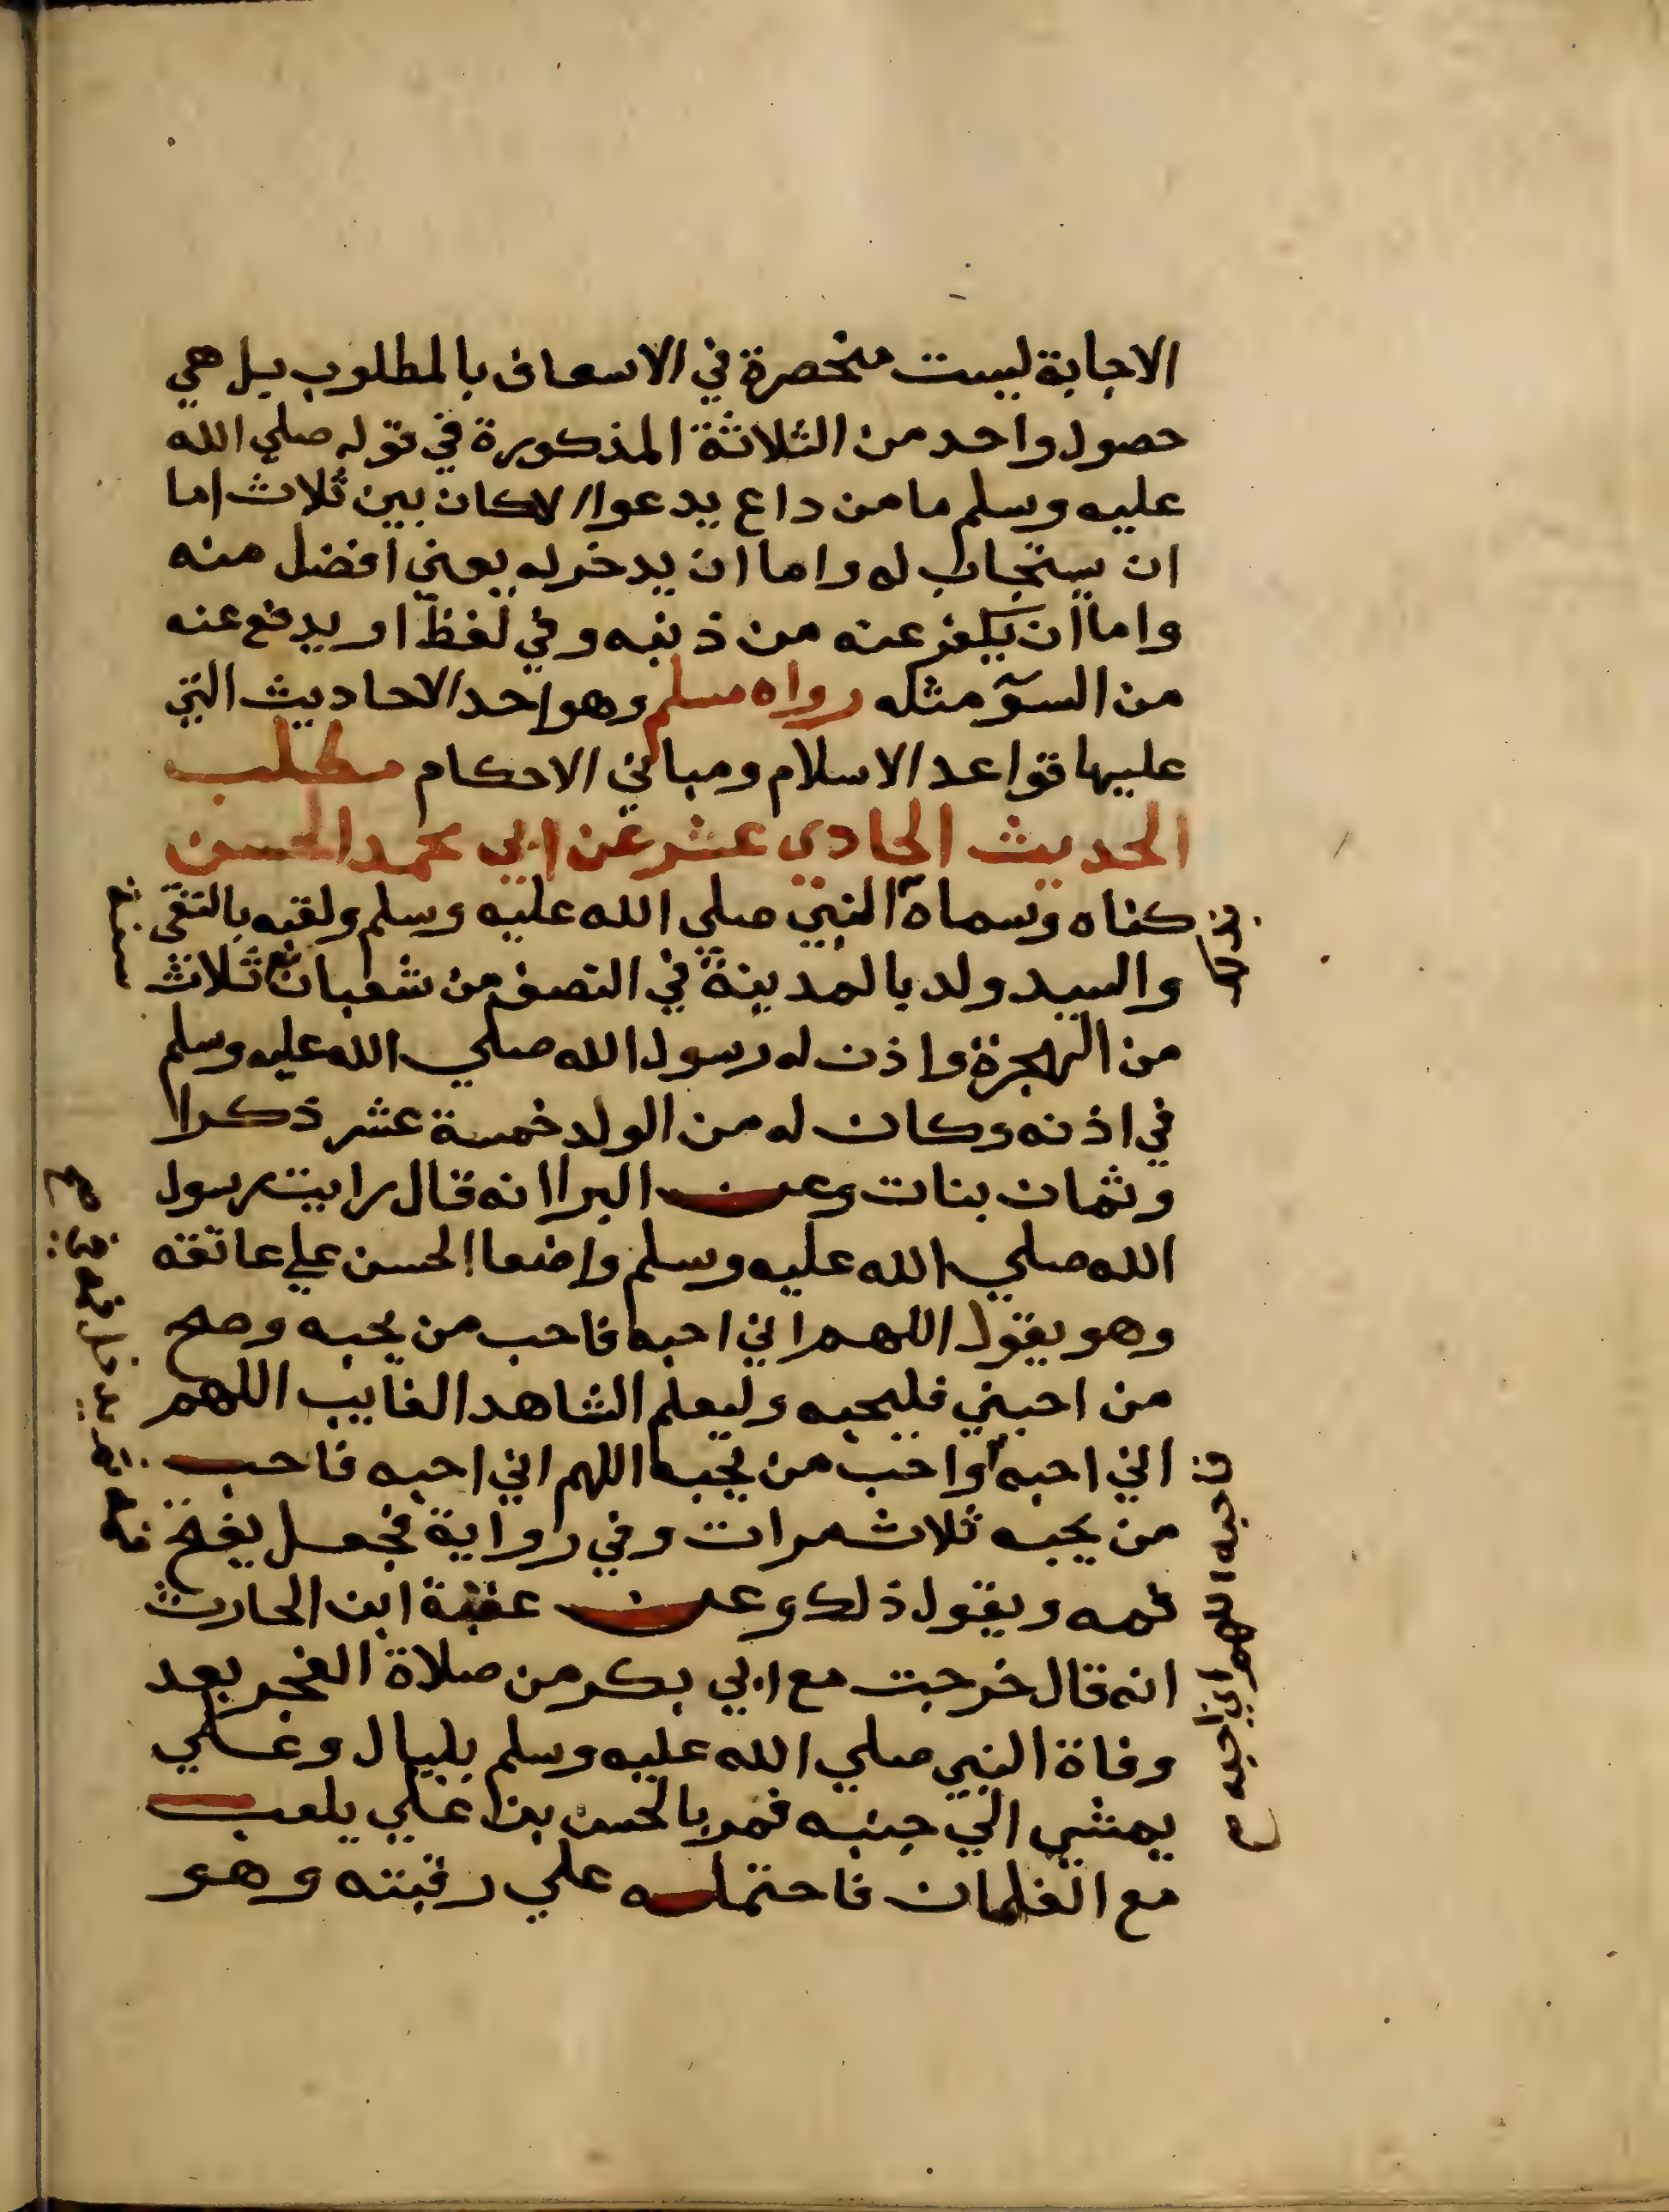 الاجابة ليست منحصرة في الاسعاف بالمطلوب بل هي
حصول واحد من الثلاثة المذكورة في قوله صلي الله
عليه وسلم ما من داع يدعوا الا كان بين ثلاث اما
ان يستجاب له واما ان يدخر له يعني افضل منه
واما ان يكفر عنه من ذنبه وفي لفظ او يدفع عنه
من السوٓ مثله رواه مسلم وهو احد الاحاديث التي
عليها قواعد الاسلام ومباني الاحكام مطلب
الحديث الحادي عشر عن ابي محمد الحسن
كناه وسماه النبي صلي الله عليه وسلم ولقبه بالتقي
والسيد ولد بالمدينة في النصف من شعبان ثلاث
من الهجرة واذن له رسول الله صلي الله عليه وسلم
في اذنه وكان له من الولد خمسة عشر ذكرا
وثمان بنات وعن البرا انه قال رايت رسول
الله صلي الله عليه وسلم واضعا الحسن علي عاتقه
وهو يقول اللهم اني احبه فاحب من يحبه وصح
من احبني فليحبه وليعلم الشاهد الغايب اللهم
اني احبه واحب من يحبه اللهم اني احبه فاحب
من يحبه ثلاث مرات وفي رواية فجعل يفتح
فمه ويقول ذلك وعن عقبة ابن الحارث
انه قال خرجت مع ابي بكر من صلاة الفجر بعد
وفاة النبي صلي الله عليه وسلم بليال وعلي
يمشي الي جنبه فمر بالحسن بن علي يلعب
مع الغلمان فاحتمله علي رقبته وهو
فاحبه اللهم اني احبه